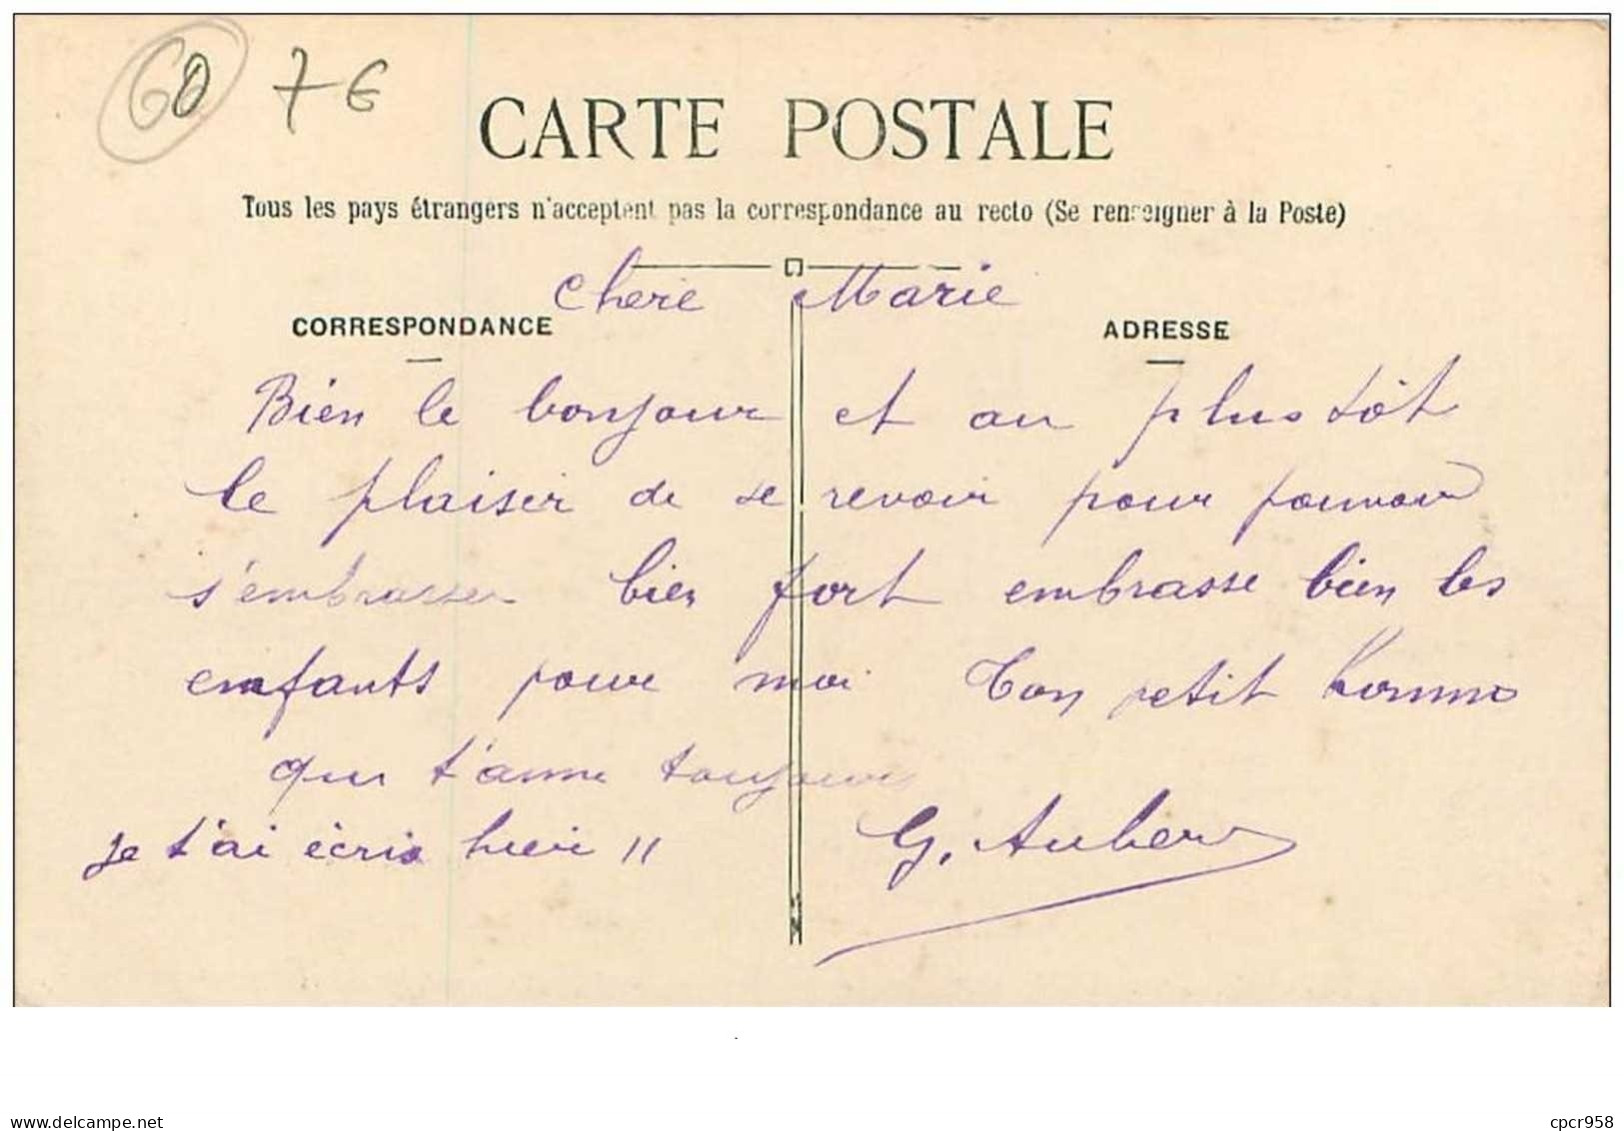 60 7€
CARTE POSTALE
Tous les pays étrangers n'acceptent pas la correspondance au recto (Se renseigner à la Poste)
Chere Marie
CORRESPONDANCE ADRESSE
Bien le bonjour et au plus tôt
le plaisir de se revoir pour pouvoir
s'embrasser bien fort embrasse bien les
enfants pour moi Ton petit homme
qui t'aime toujours
je t'ai écris hier !! G. Auber
www.delcampe.net cpcr958